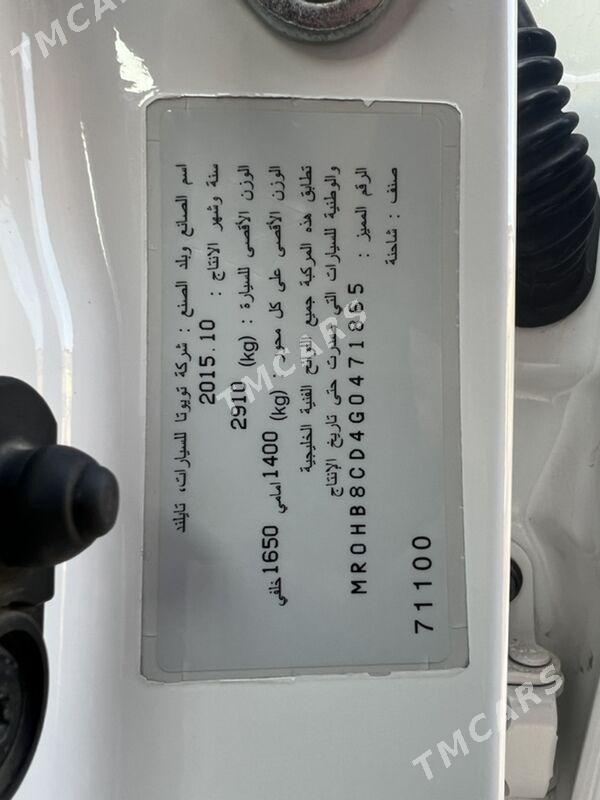 اسم الصانع وبلد الصنع : شركة تويوتا للسيارات، تايلند
سنة وشهر الانتاج : 2015.10
الوزن الأقصى للسيارة : (kg) 2910
الوزن الأقصى على كل محور : (kg) 1400 امامي 1650 خلفي
تطابق هذه المركبة جميع اللوائح الفنية الخليجية
والوطنية للسيارات التي صدرت حتى تاريخ الإنتاج
الرقم المميز : MR0HB8CD4G0471865
صنف : شاحنة
71100
TMCARS
TMCARS
TMCARS